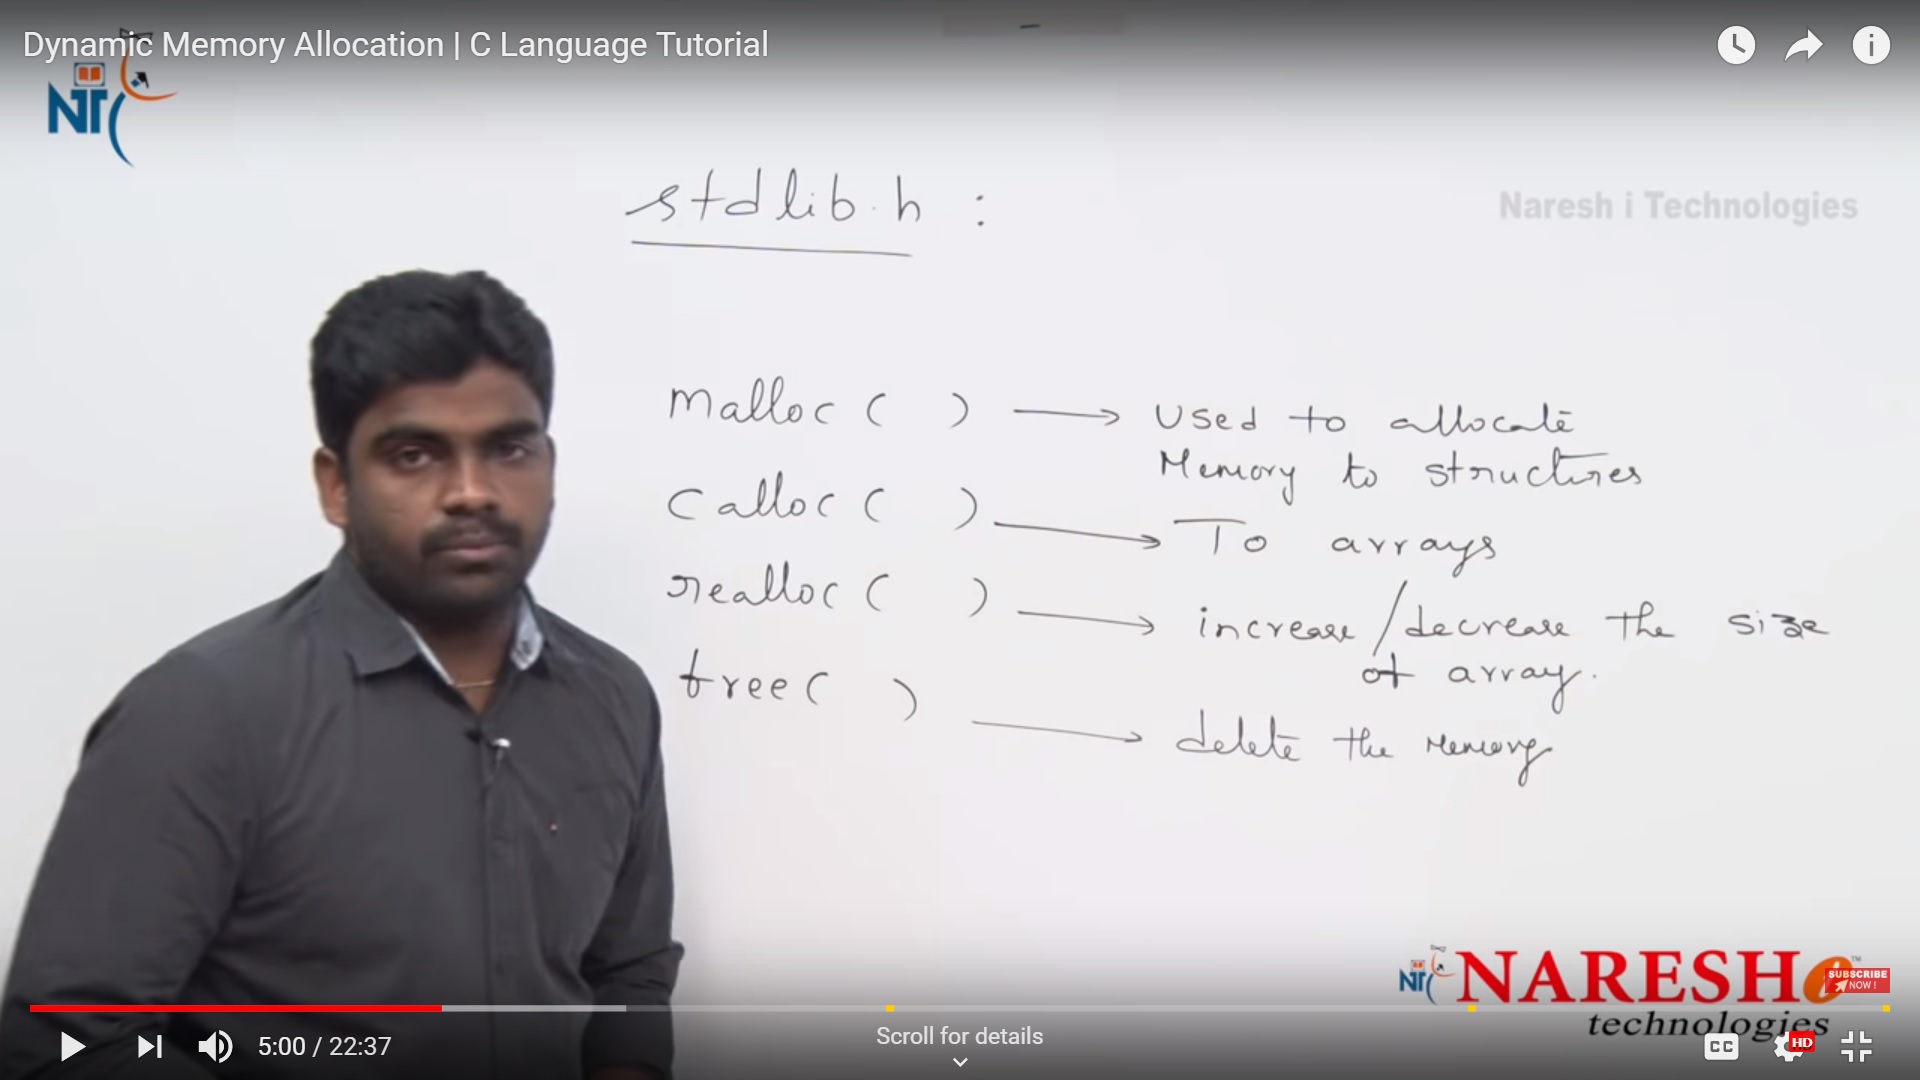 Dynamic Memory Allocation | C Language Tutorial
NT
Naresh i Technologies
stdlib.h :
malloc ( ) → Used to allocate
Memory to structures
Calloc ( ) → To arrays
realloc ( ) → increase/decrease the size
of array.
free ( ) → delete the Memory
NT NARESH i ™
technologies
SUBSCRIBE
NOW !
5:00 / 22:37
Scroll for details
CC
HD